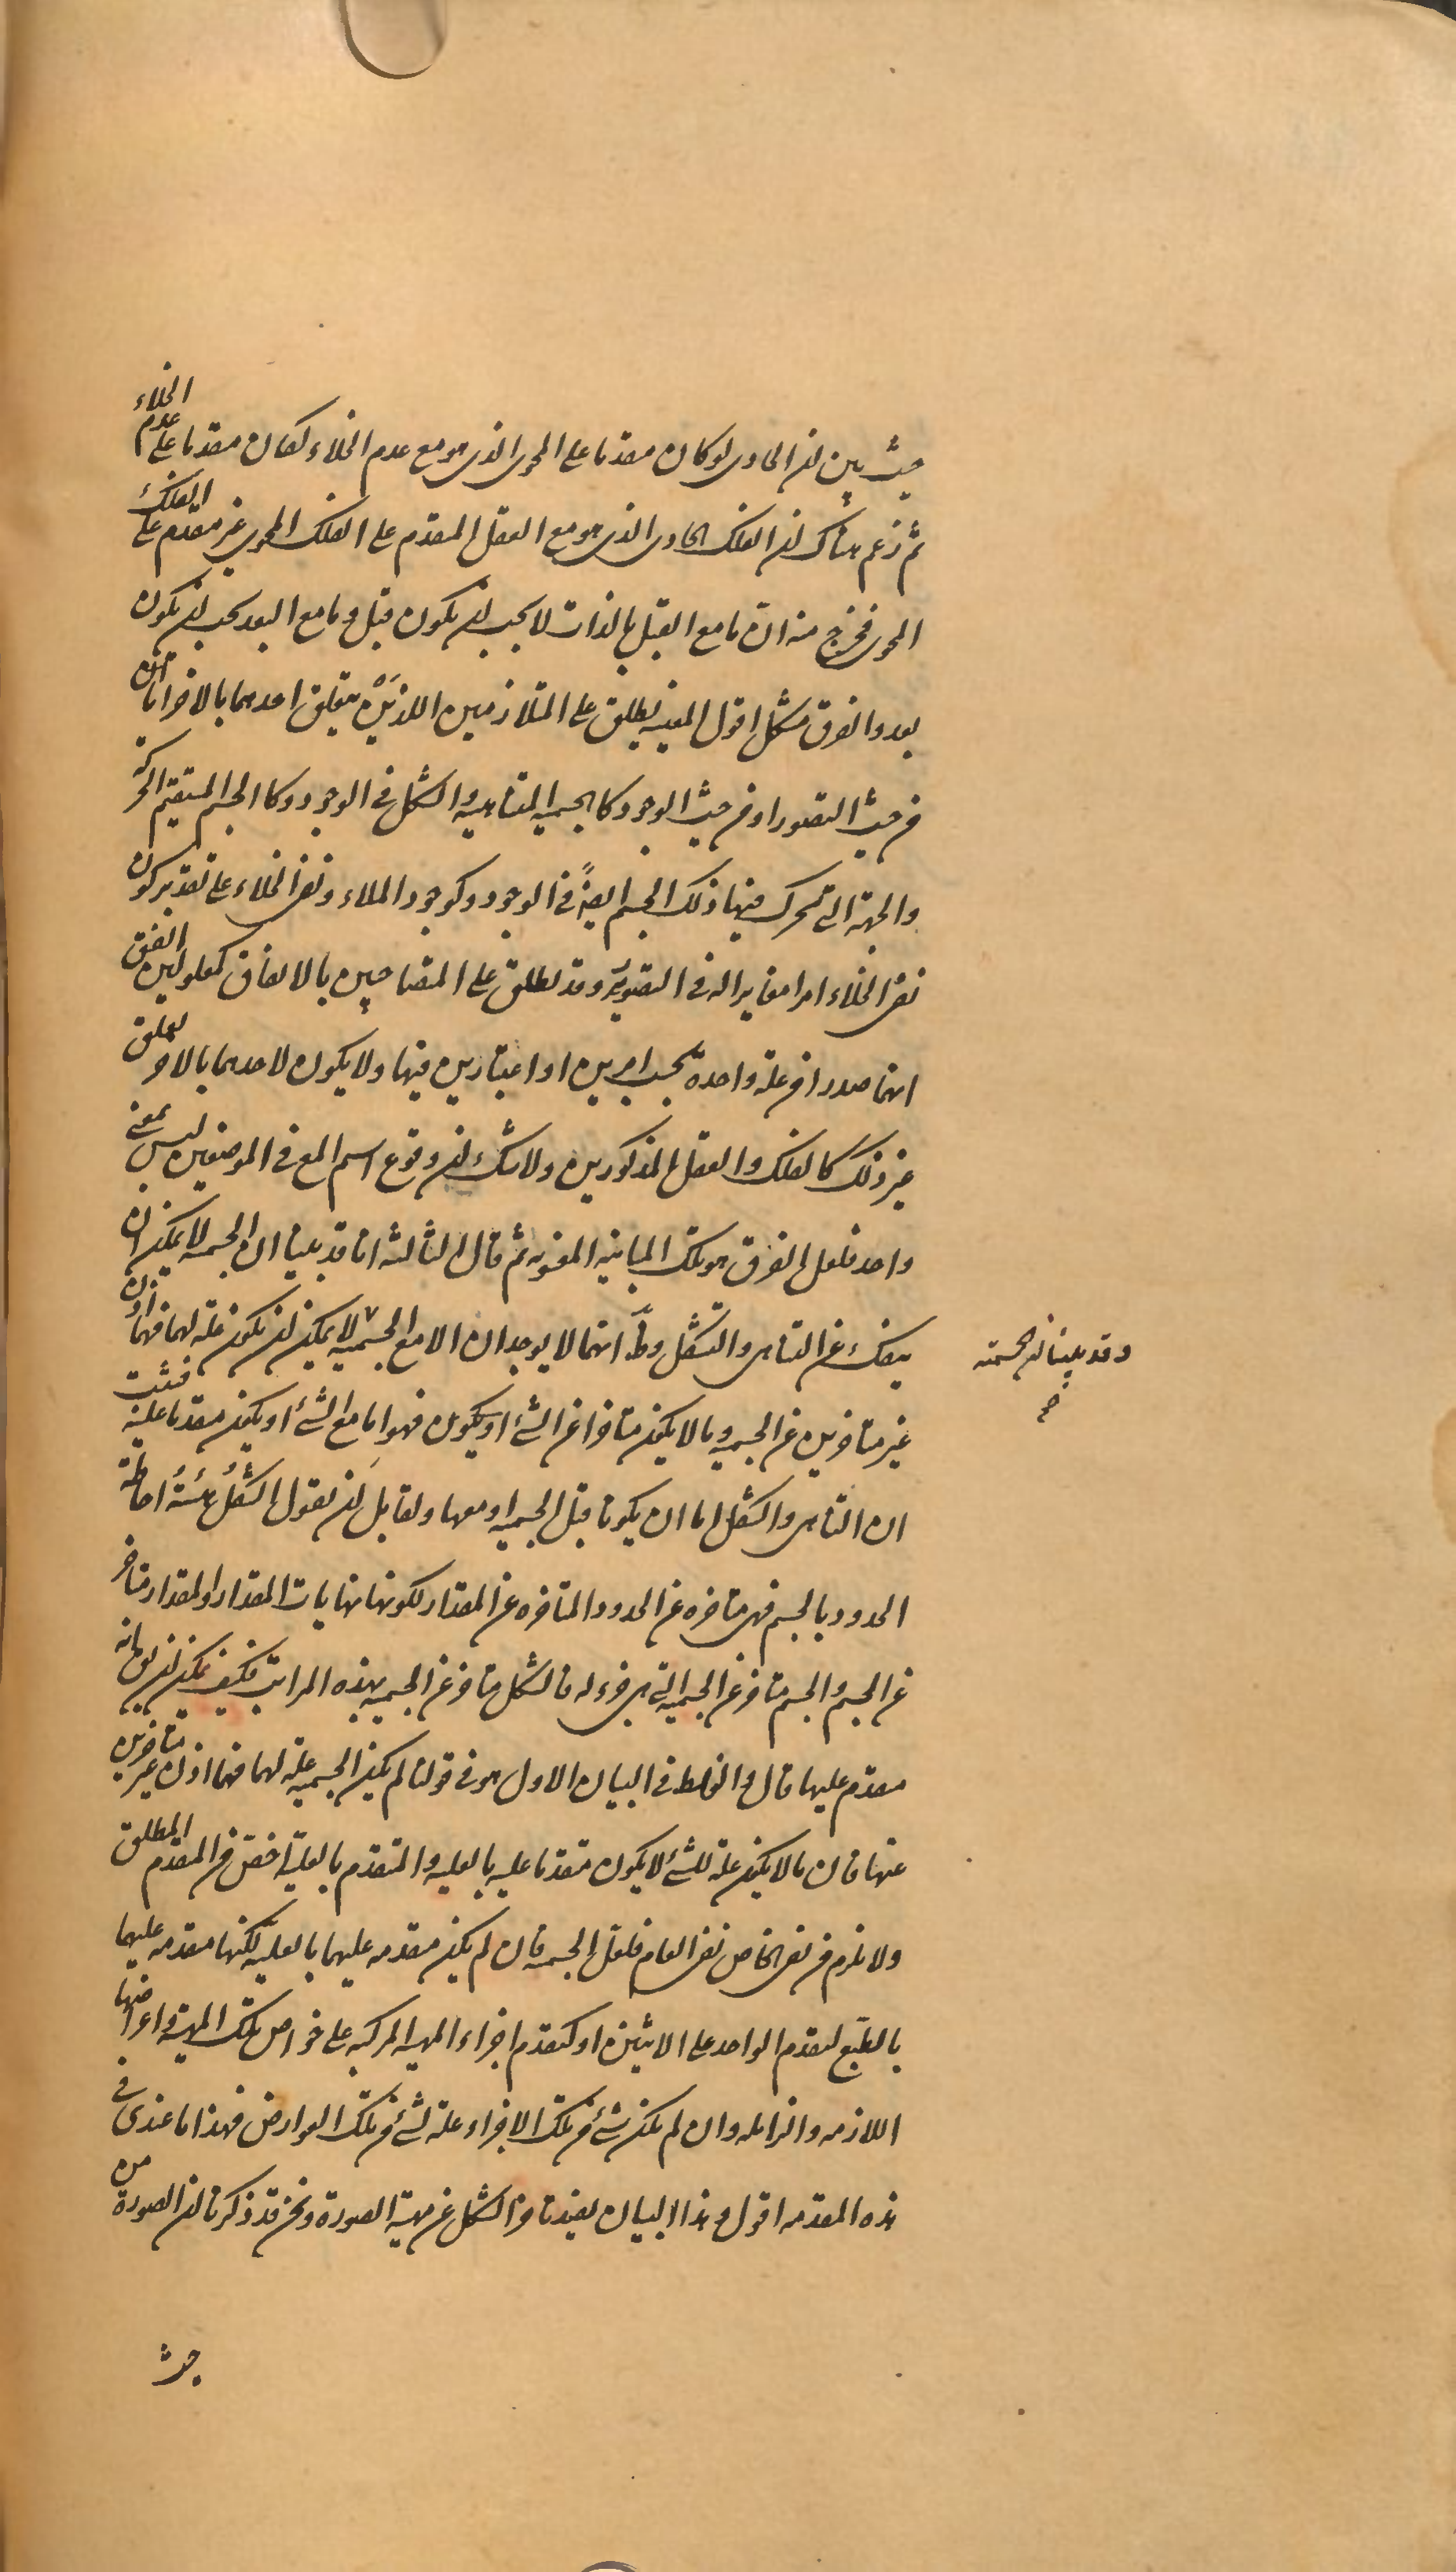 حيث بين ان الحاوى لو كان مقدما على المحوى الذى هو مع عدم الخلاء لكان مقدما على عدم الخلاء
ثم زعم هناك ان الفلك الحاوى الذى هو مع العقل المقدم على الفلك المحوى غير مقدم على الفلك
المحوى فخرج منه ان ما مع القبل بالذات لا يجب ان يكون قبل وما مع البعد يجب ان يكون
بعد والفرق مشكل اقول المعية يطلق على المتلازمين اللذَيْن يتعلق احدهما بالاخر اما
من حيث التصور او من حيث الوجود كالجسمية المتناهية والشكل فى الوجود وكالجسم المستقيم الحركة
والجهة التى تتحرك فيها ذلك الجسم ايضًا فى الوجود وكوجود الملاء ونفى الخلاء على تقدير كون
نفى الخلاء امرا مغايرا له فى التصور وقد يطلق على المتصاحبين بالاتفاق كمعلولين اتفق
انهما صدرا من علة واحدة بحسب امرين او اعتبارين فيها ولا يكون لاحدهما بالاخر تعلق
غير ذلك كالفلك والعقل المذكورين ولا شك ان وقوع اسم المع فى الموضعين ليس بمعنى
واحد فلعل الفرق هو تلك المباينة المعنوية ثم قال الثالثة انا قد بينا ان الجسمية لا يمكن ان
ينفك عن التناهى والتشكل وظ انهما لا يوجدان الا مع الجسمية لا يمكن ان يكون علة لهما فهما اذن
وقد بينا ان الجسمية
صح
غير متاخرين عن الجسمية وما لا يكون متاخرا عن الشئ او يكون فهو اما مع الشئ او يكون مقدما عليه فثبت
ان التناهى والشكل اما ان يكونا قبل الجسمية او معها ولقايل ان يقول الشكلُ هيئةُ احاطة
الحدود بالجسم فهى متاخرة عن الحدود المتاخرة عن المقدار لكونها نهايات المقدار والمقدار متاخر
عن الجسم والجسم متاخر عن الجسمية التى هى جزء له فالشكل متاخر عن الجسمية بهذه المراتب فكيف يمكن ان يق انه
مقدم عليها قال والغلط فى البيان الاول هو فى قولنا لم يكن الجسمية علة لهما فهما اذن غير متاخرين
عنها فان ما لا يكون علة للشئ لا يكون متقدما عليه بالعلية والمتقدم بالعلية اخص من المتقدم المطلق
ولا يلزم من نفى الخاص نفى العام فلعل الجسمية فان لم يكن متقدمة عليهما بالعلية لكنها متقدمة عليهما
بالطبع كتقدم الواحد على الاثنين او كتقدم اجزاء المهية المركبة على خواص تلك المهية واعراضها
اللازمة والزايلة وان لم يكن شئ من تلك الاجزاء علة لشئ من تلك العوارض فهذا ما عندى فى
هذه المقدمة اقول وهذا البيان يفيد تاخر الشكل عن مهية الصورة ونحن قد ذكرنا ان الصورة من
حيث